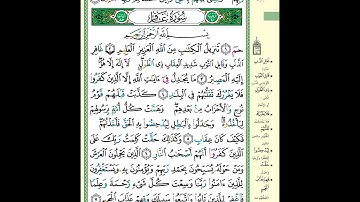 سُورَةُ غَافِرٍ
بِسْمِ ٱللَّهِ ٱلرَّحْمَٰنِ ٱلرَّحِيمِ
حمٓ ١ تَنزِيلُ ٱلْكِتَٰبِ مِنَ ٱللَّهِ ٱلْعَزِيزِ ٱلْعَلِيمِ ٢ غَافِرِ
ٱلذَّنۢبِ وَقَابِلِ ٱلتَّوْبِ شَدِيدِ ٱلْعِقَابِ ذِى ٱلطَّوْلِ لَآ إِلَٰهَ إِلَّا هُوَ
إِلَيْهِ ٱلْمَصِيرُ ٣ مَا يُجَٰدِلُ فِىٓ ءَايَٰتِ ٱللَّهِ إِلَّا ٱلَّذِينَ كَفَرُوا۟
فَلَا يَغْرُرْكَ تَقَلُّبُهُمْ فِى ٱلْبِلَٰدِ ٤ كَذَّبَتْ قَبْلَهُمْ قَوْمُ
نُوحٍ وَٱلْأَحْزَابُ مِنۢ بَعْدِهِمْ وَهَمَّتْ كُلُّ أُمَّةٍۭ بِرَسُولِهِمْ
لِيَأْخُذُوهُ وَجَٰدَلُوا۟ بِٱلْبَٰطِلِ لِيُدْحِضُوا۟ بِهِ ٱلْحَقَّ فَأَخَذْتُهُمْ
فَكَيْفَ كَانَ عِقَابِ ٥ وَكَذَٰلِكَ حَقَّتْ كَلِمَتُ رَبِّكَ
عَلَى ٱلَّذِينَ كَفَرُوٓا۟ أَنَّهُمْ أَصْحَٰبُ ٱلنَّارِ ٦ ٱلَّذِينَ يَحْمِلُونَ ٱلْعَرْشَ
وَمَنْ حَوْلَهُۥ يُسَبِّحُونَ بِحَمْدِ رَبِّهِمْ وَيُؤْمِنُونَ بِهِۦ وَيَسْتَغْفِرُونَ
لِلَّذِينَ ءَامَنُوا۟ رَبَّنَا وَسِعْتَ كُلَّ شَىْءٍ رَّحْمَةً وَعِلْمًا
فَٱغْفِرْ لِلَّذِينَ تَابُوا۟ وَٱتَّبَعُوا۟ سَبِيلَكَ وَقِهِمْ عَذَابَ ٱلْجَحِيمِ